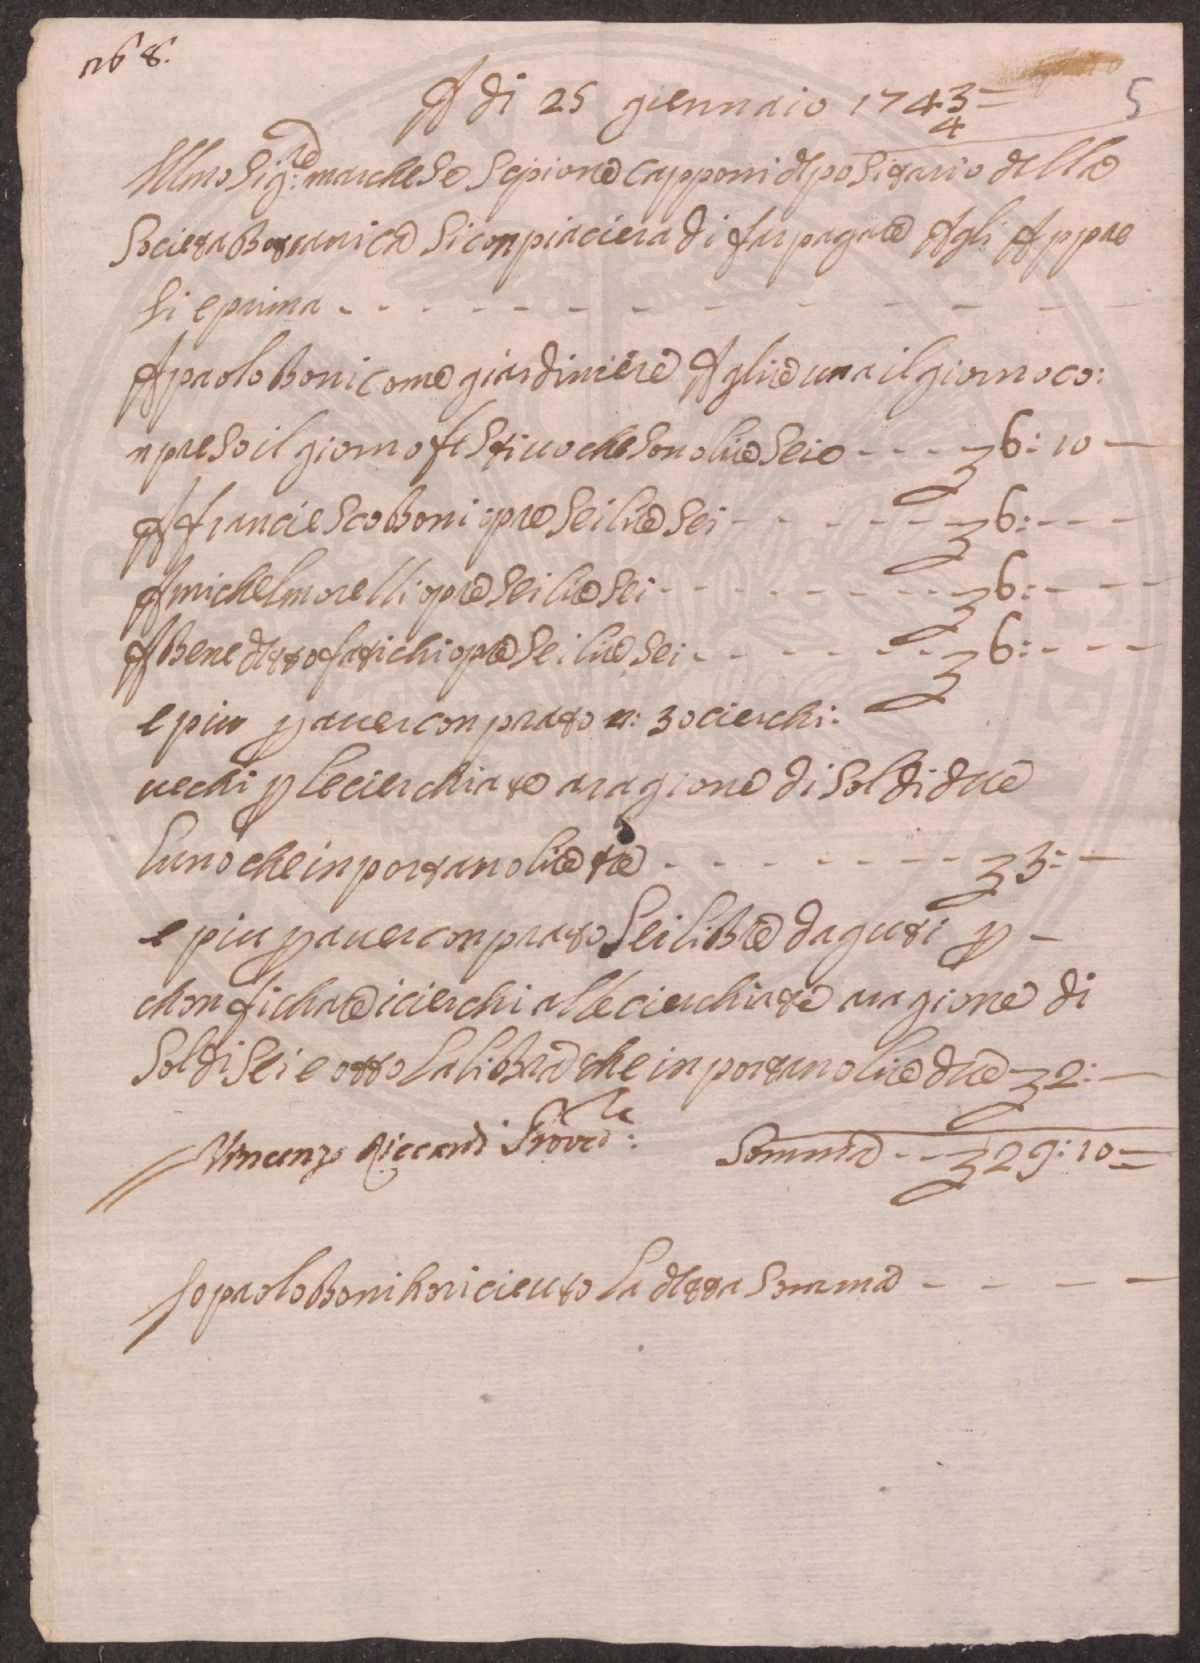 n° 6 8.
5
A di 25 giennaio 1743=
4
Illmo Sig:re marchese Scipione Capponi dipositario della
Societa Botanica Si conpiaciera di far pagare Agli Appre
si e prima - - - - - - - - - -
A paolo Boni come giardiniere A lire una il giorno co:
npreso il giorno festivo che sono lire seie - - - £ 6: 10 -
A franciesco Boni opre sei lire sei - - - - - £ 6: - - -
A michel morelli opre sei lire sei - - - - - - £ 6: - - -
A Benedetto fatichi opre sei lire sei - - - - - £ 6: - - -
e piu p aver conprato n: 30 cierchi:
vechi p le cierchiate a ragione di soldi due
luno che inportano lire tre - - - - - - - £ 3: -
e piu p aver conprato sei libbre daguti p -
chonfichare i cierchi alle cierchiate a ragione di
soldi sei e otto la libbra che inportano lire due £ 2: -
Vincenzo Riccardi Provre: Somma - - £ 29: 10 =
Io paolo Boni ho riceuto la detta Somma - - - -